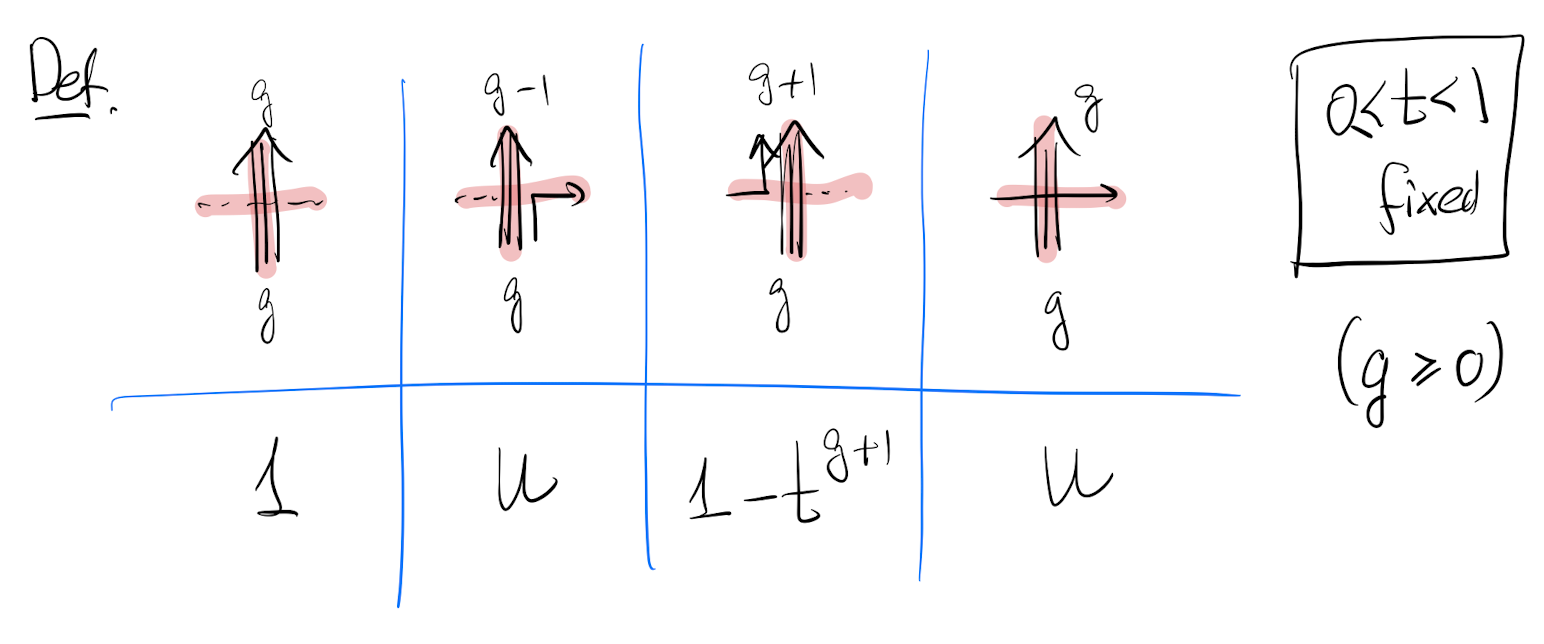 Def.
g g-1 g+1 g
g g g g
1 u 1-t^{g+1} u
0<t<1
fixed
(g ⩾ 0)